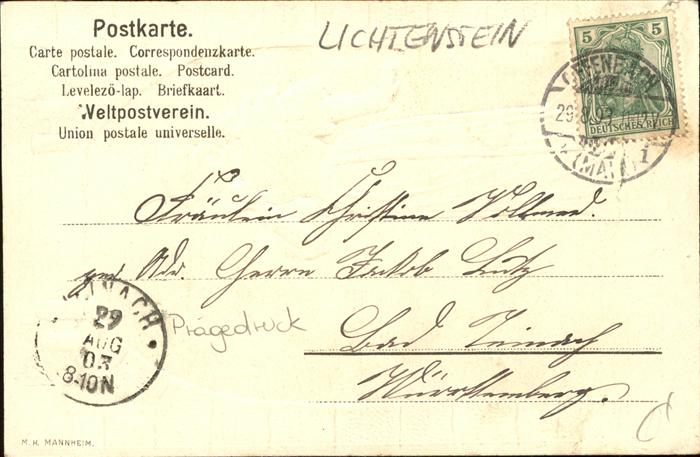 Postkarte.
Carte postale. Correspondenzkarte.
Cartolina postale. Postcard.
Levelező-lap. Briefkaart.
Weltpostverein.
Union postale universelle.
LICHTENSTEIN
5 5
DEUTSCHES REICH
OFFENBACH
29.8.03
(MAIN) 1
Fräulein Christine Vollmed.
per Adr. Herrn Jakob Lutz
Bad Teinach
Württemberg.
Prägedruck
INACH
29
AUG
03
8-10N
M. H. MANNHEIM.